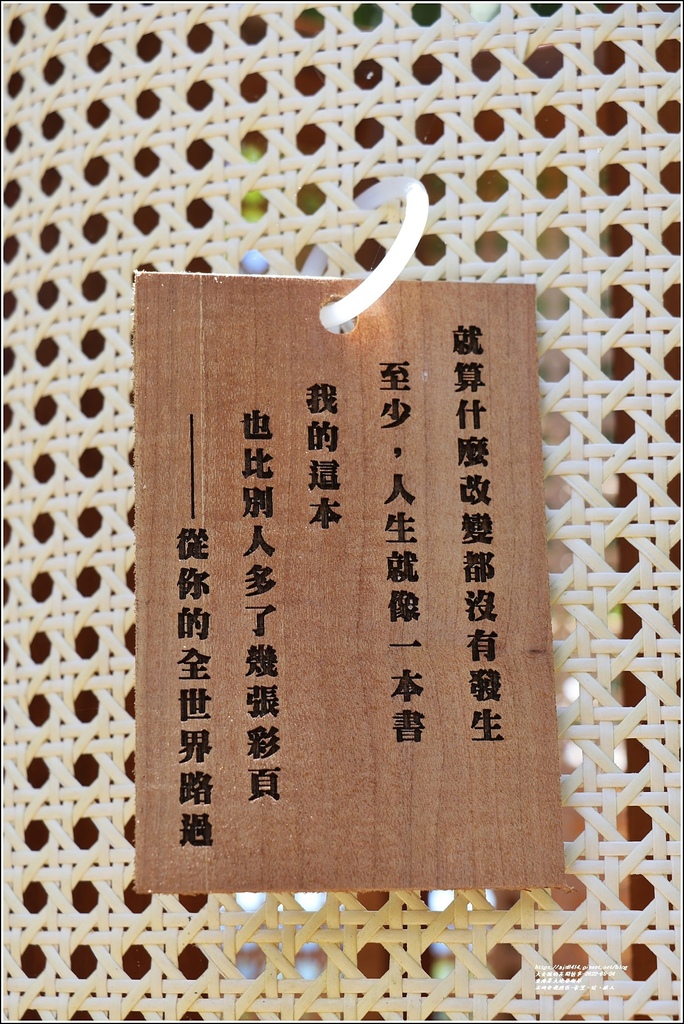 就算什麼改變都沒有發生
至少，人生就像一本書
我的這本
也比別人多了幾張彩頁
——從你的全世界路過